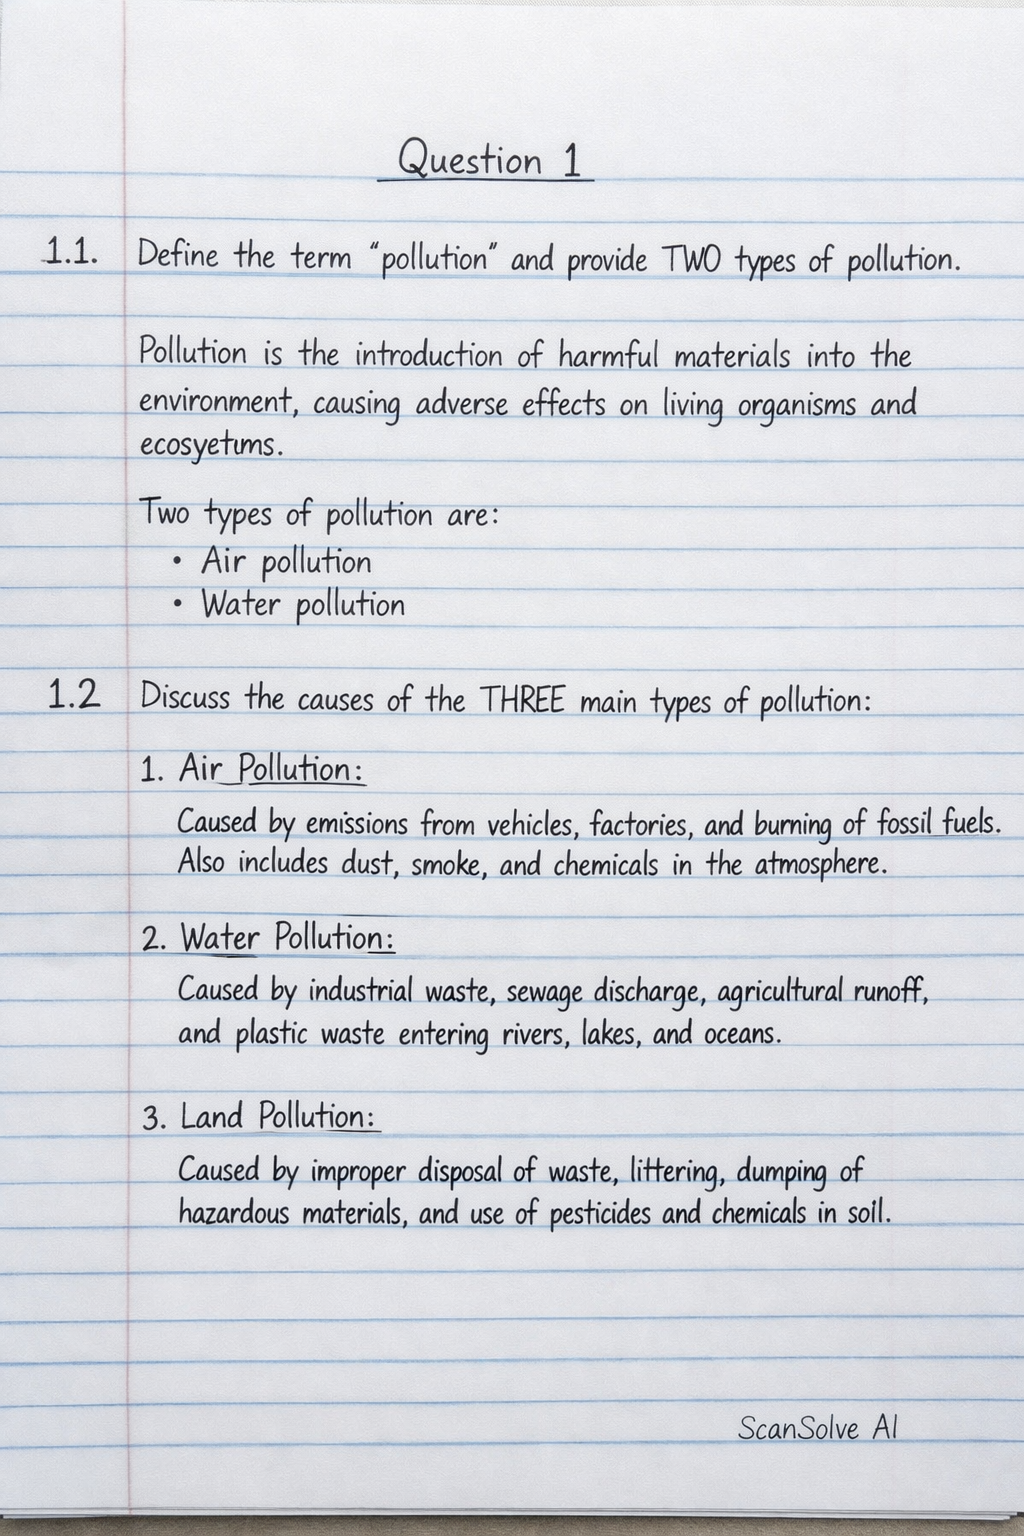 Question 1
1.1. Define the term "pollution" and provide TWO types of pollution.
Pollution is the introduction of harmful materials into the
environment, causing adverse effects on living organisms and
ecosyetums.
Two types of pollution are:
• Air pollution
• Water pollution
1.2 Discuss the causes of the THREE main types of pollution:
1. Air Pollution:
Caused by emissions from vehicles, factories, and burning of fossil fuels.
Also includes dust, smoke, and chemicals in the atmosphere.
2. Water Pollution:
Caused by industrial waste, sewage discharge, agricultural runoff,
and plastic waste entering rivers, lakes, and oceans.
3. Land Pollution:
Caused by improper disposal of waste, littering, dumping of
hazardous materials, and use of pesticides and chemicals in soil.
ScanSolve AI